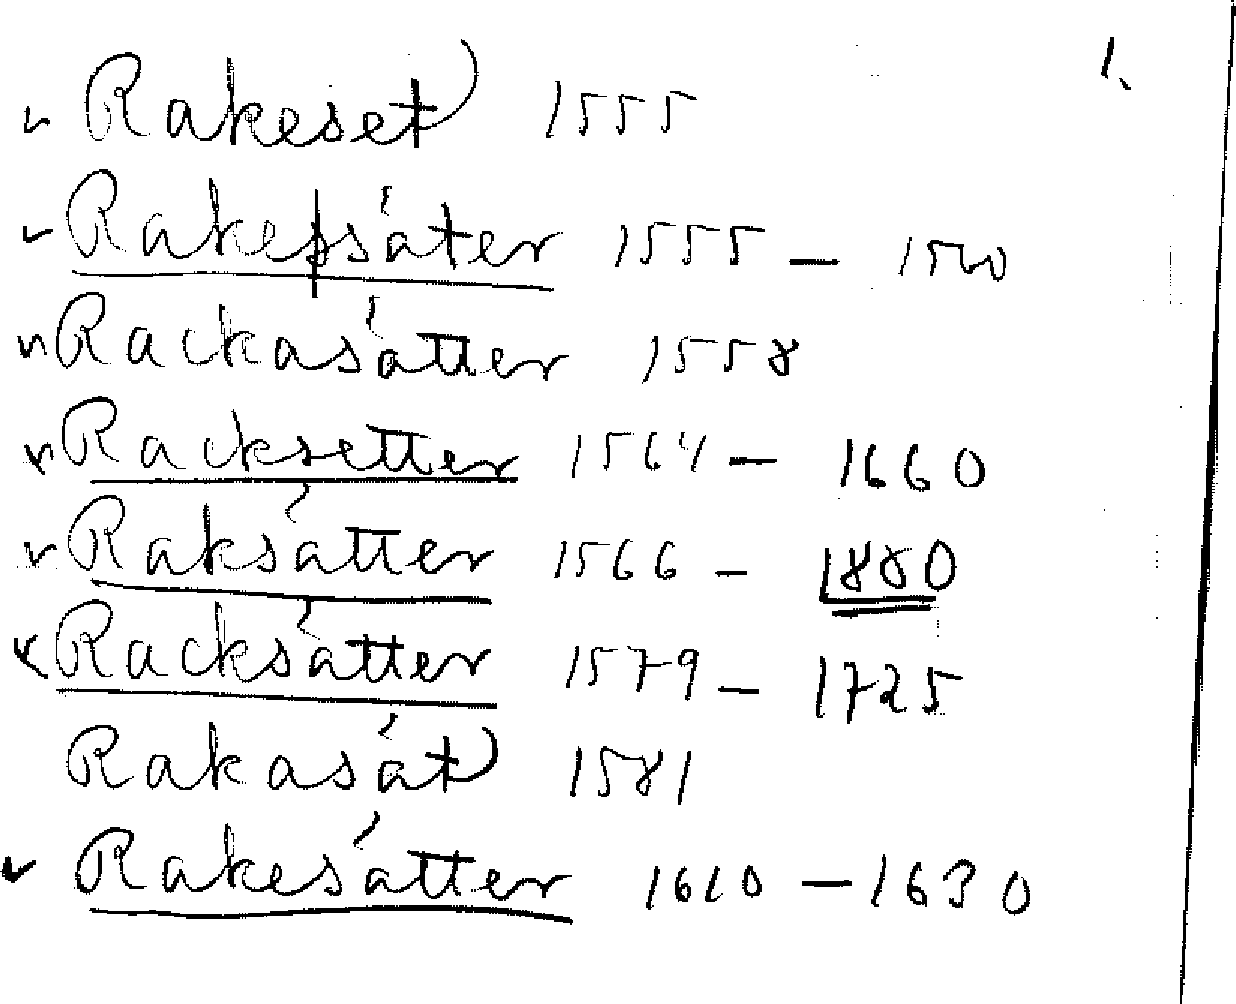 1.
Rakeset 1555
Rakessäter 1555 – 1560
Rackasätter 1558
Racksetter 1564 – 1660
Raksätter 1566 – 1880
Racksätter 1579 – 1725
Rakasät 1581
Rakesätter 1610 – 1630